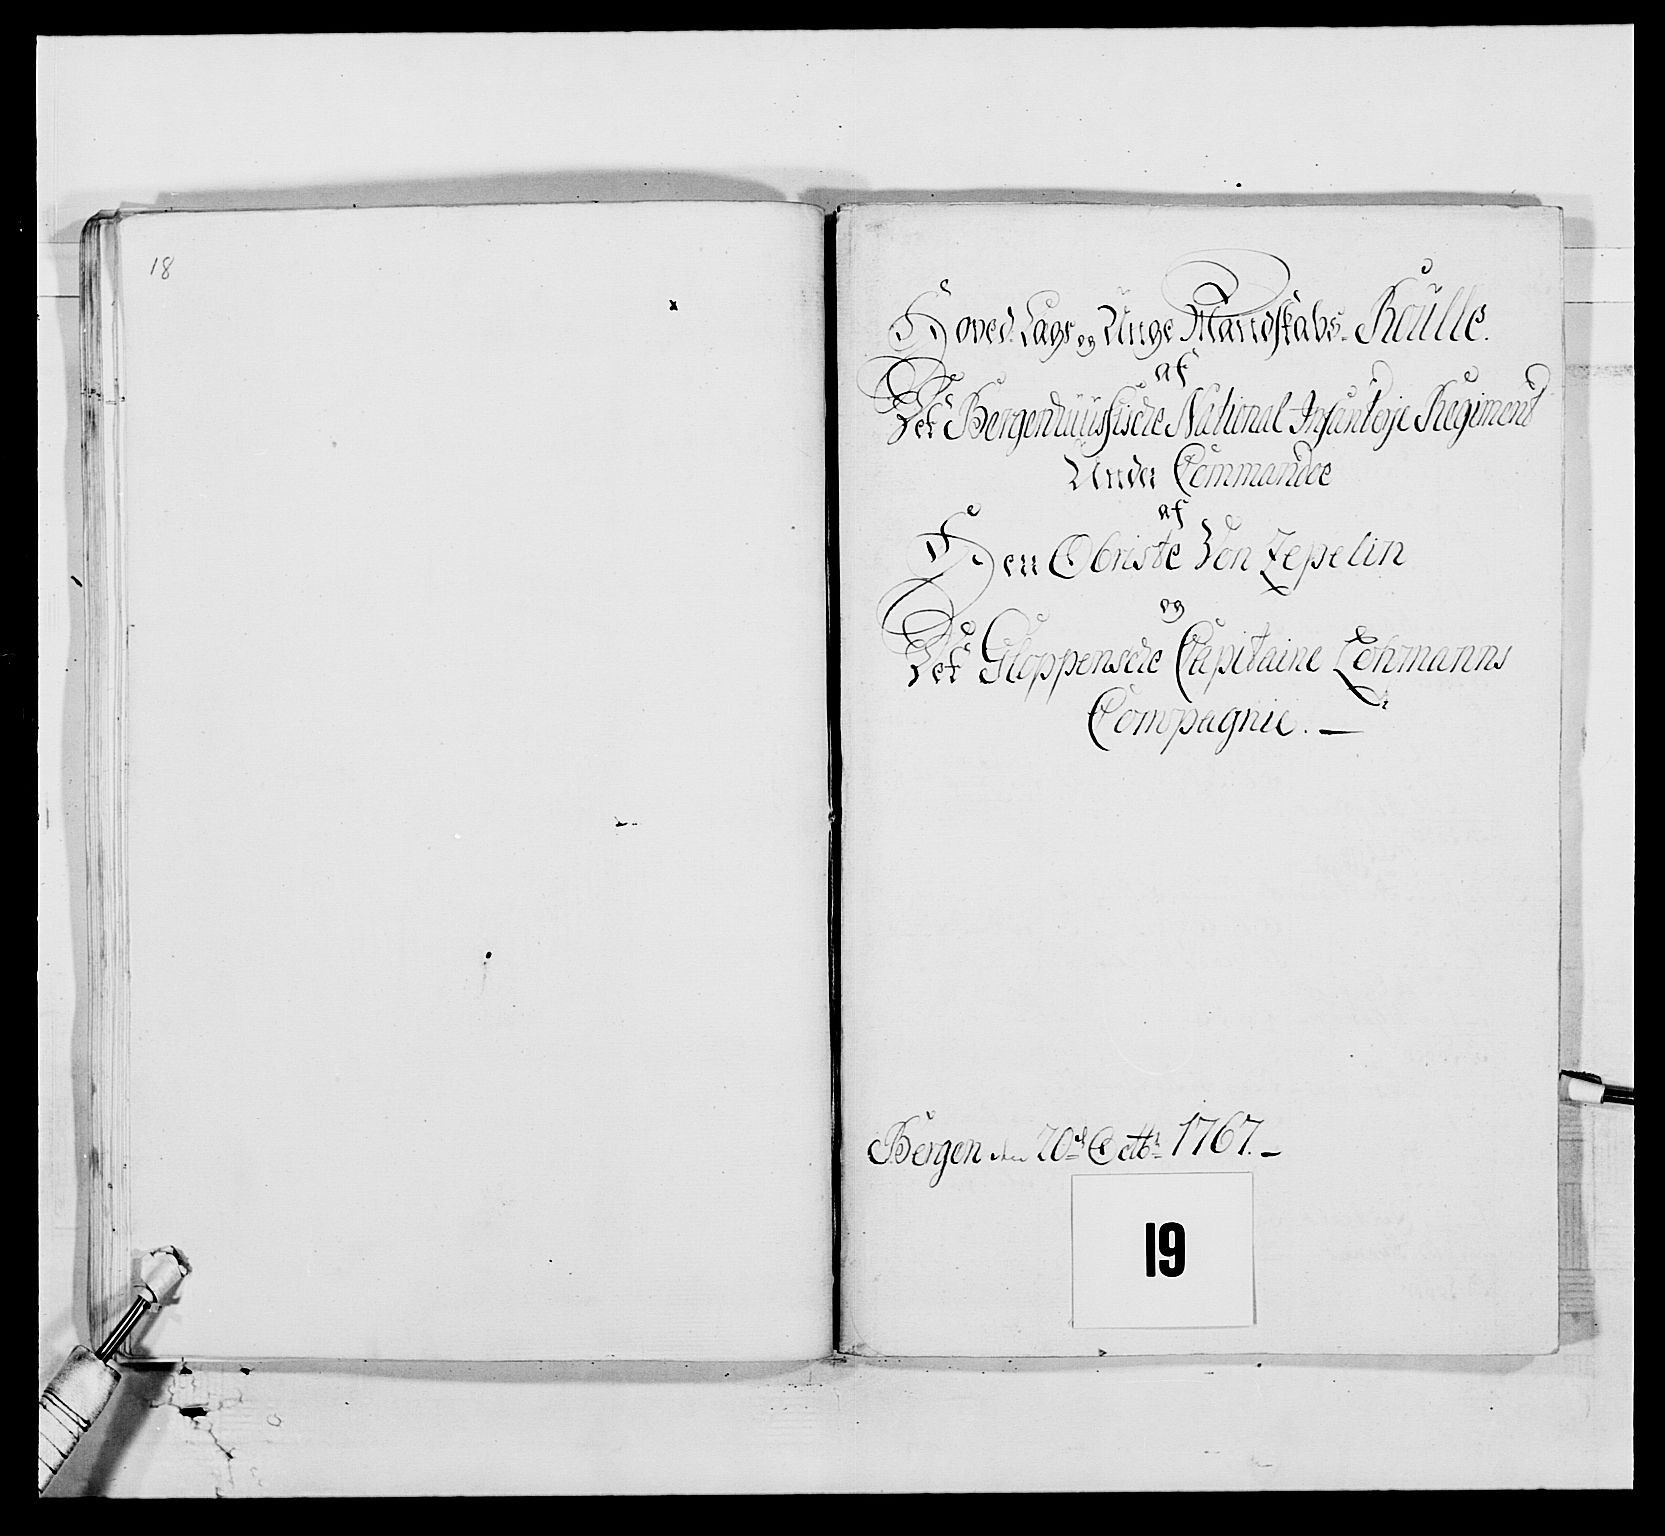 18
Hoved Lægs og Unge Mandskabs-Roulle.
af
Det Bergenhuusische National Infanterje Regiment
Under Commandoe
af
Herr Obriste Von Zepelin
og
Det Gloppensche Capitaine Lohmanns
Compagnie. —
Bergen den 20d Octbr 1767. –
19